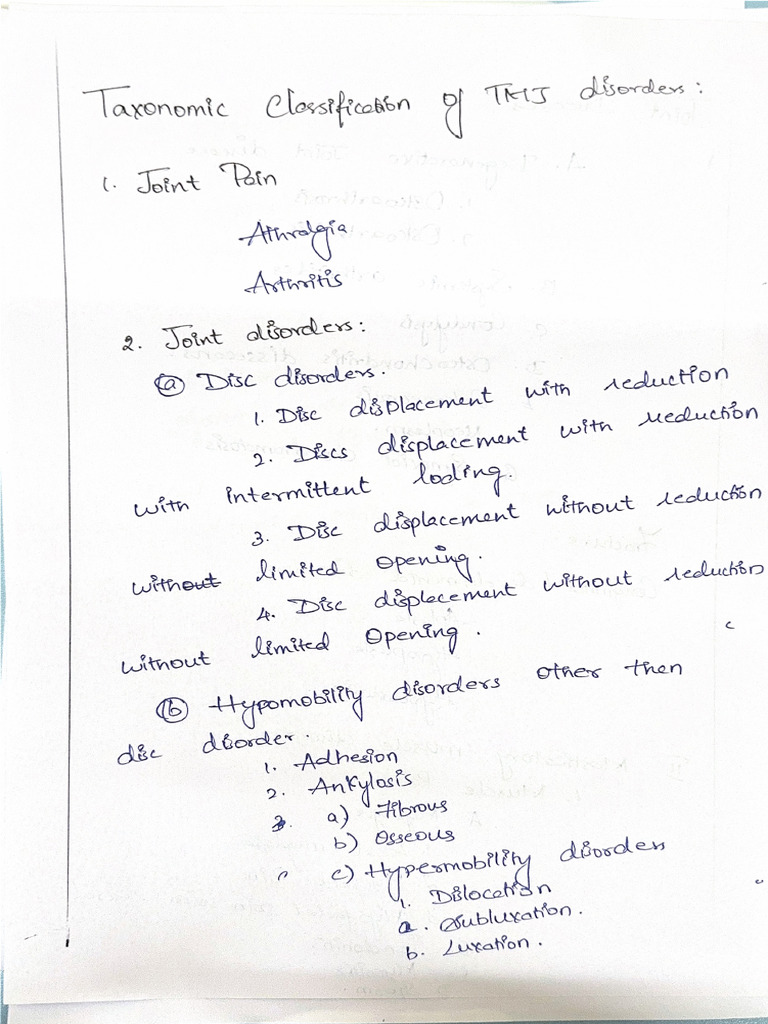 Taxonomic Classification of TMJ disorders:
1. Joint Pain
Athralgia
Arthritis
2. Joint disorders:
(a) Disc disorders.
1. Disc displacement with reduction
2. Discs displacement with reduction
with intermittent loding.
3. Disc displacement without reduction
without limited opening.
4. Disc displecement without reduction
without limited opening.
(b) Hypomobility disorders other then
disc disorder.
1. Adhesion
2. Ankylosis
3. a) Fibrous
b) Osseous
c) Hypermobility disorders
1. Dislocation
a. Subluxation.
b. Luxation.